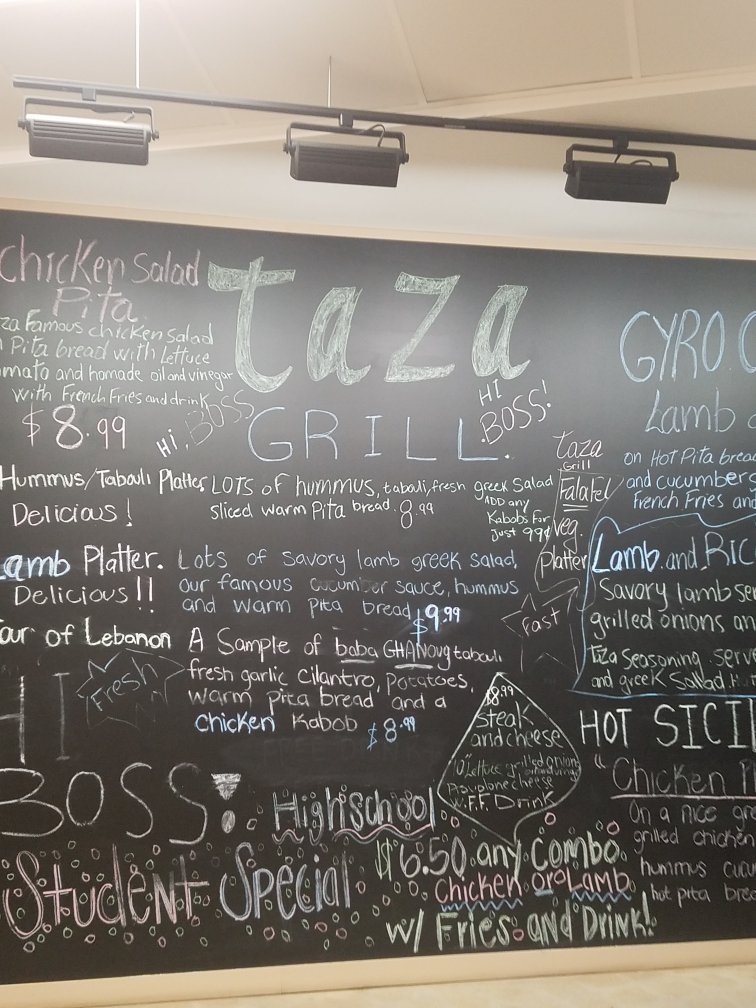 Chicken Salad
Pita
za Famous chicken Salad
Pita bread with Lettuce
mato and homade oil and vinegar
with French Fries and drink
$8.99
taza
GRILL.
Hi, BOSS
HI
BOSS!
Hummus/Tabouli Platter
Delicious!
LOTS of hummus, tabouli, fresh greek Salad
sliced warm Pita bread. 8.99
ADD any
Kabobs For
Just 99¢
amb Platter.
Delicious!!
Lots of Savory lamb greek salad,
our famous cucumber sauce, hummus
and warm pita bread $9.99
our of Lebanon
A Sample of baba GHANOug tabouli
fresh garlic cilantro, potatoes,
warm Pita bread and a
chicken Kabob $8.99
Fresh
HI
BOSS!
taza
Grill
Falafel
veg.
Platter
Fast
$8.99
steak
and cheese
Lettuce grilled onions
cheese
W.F.F. Drink
GYRO
Lamb
on HOT Pita brea
and cucumbers
French Fries an
Lamb and RIC
Savory lamb ser
grilled onions an
Taza Seasoning serv
and greek Sallad
HOT SICI
"Chicken
On a nice
grilled chicken
hummus cuc
hot pita bre
Highschool
Student Special
$6.50 any Combo
Chicken or Lamb
w/ Fries and Drink!